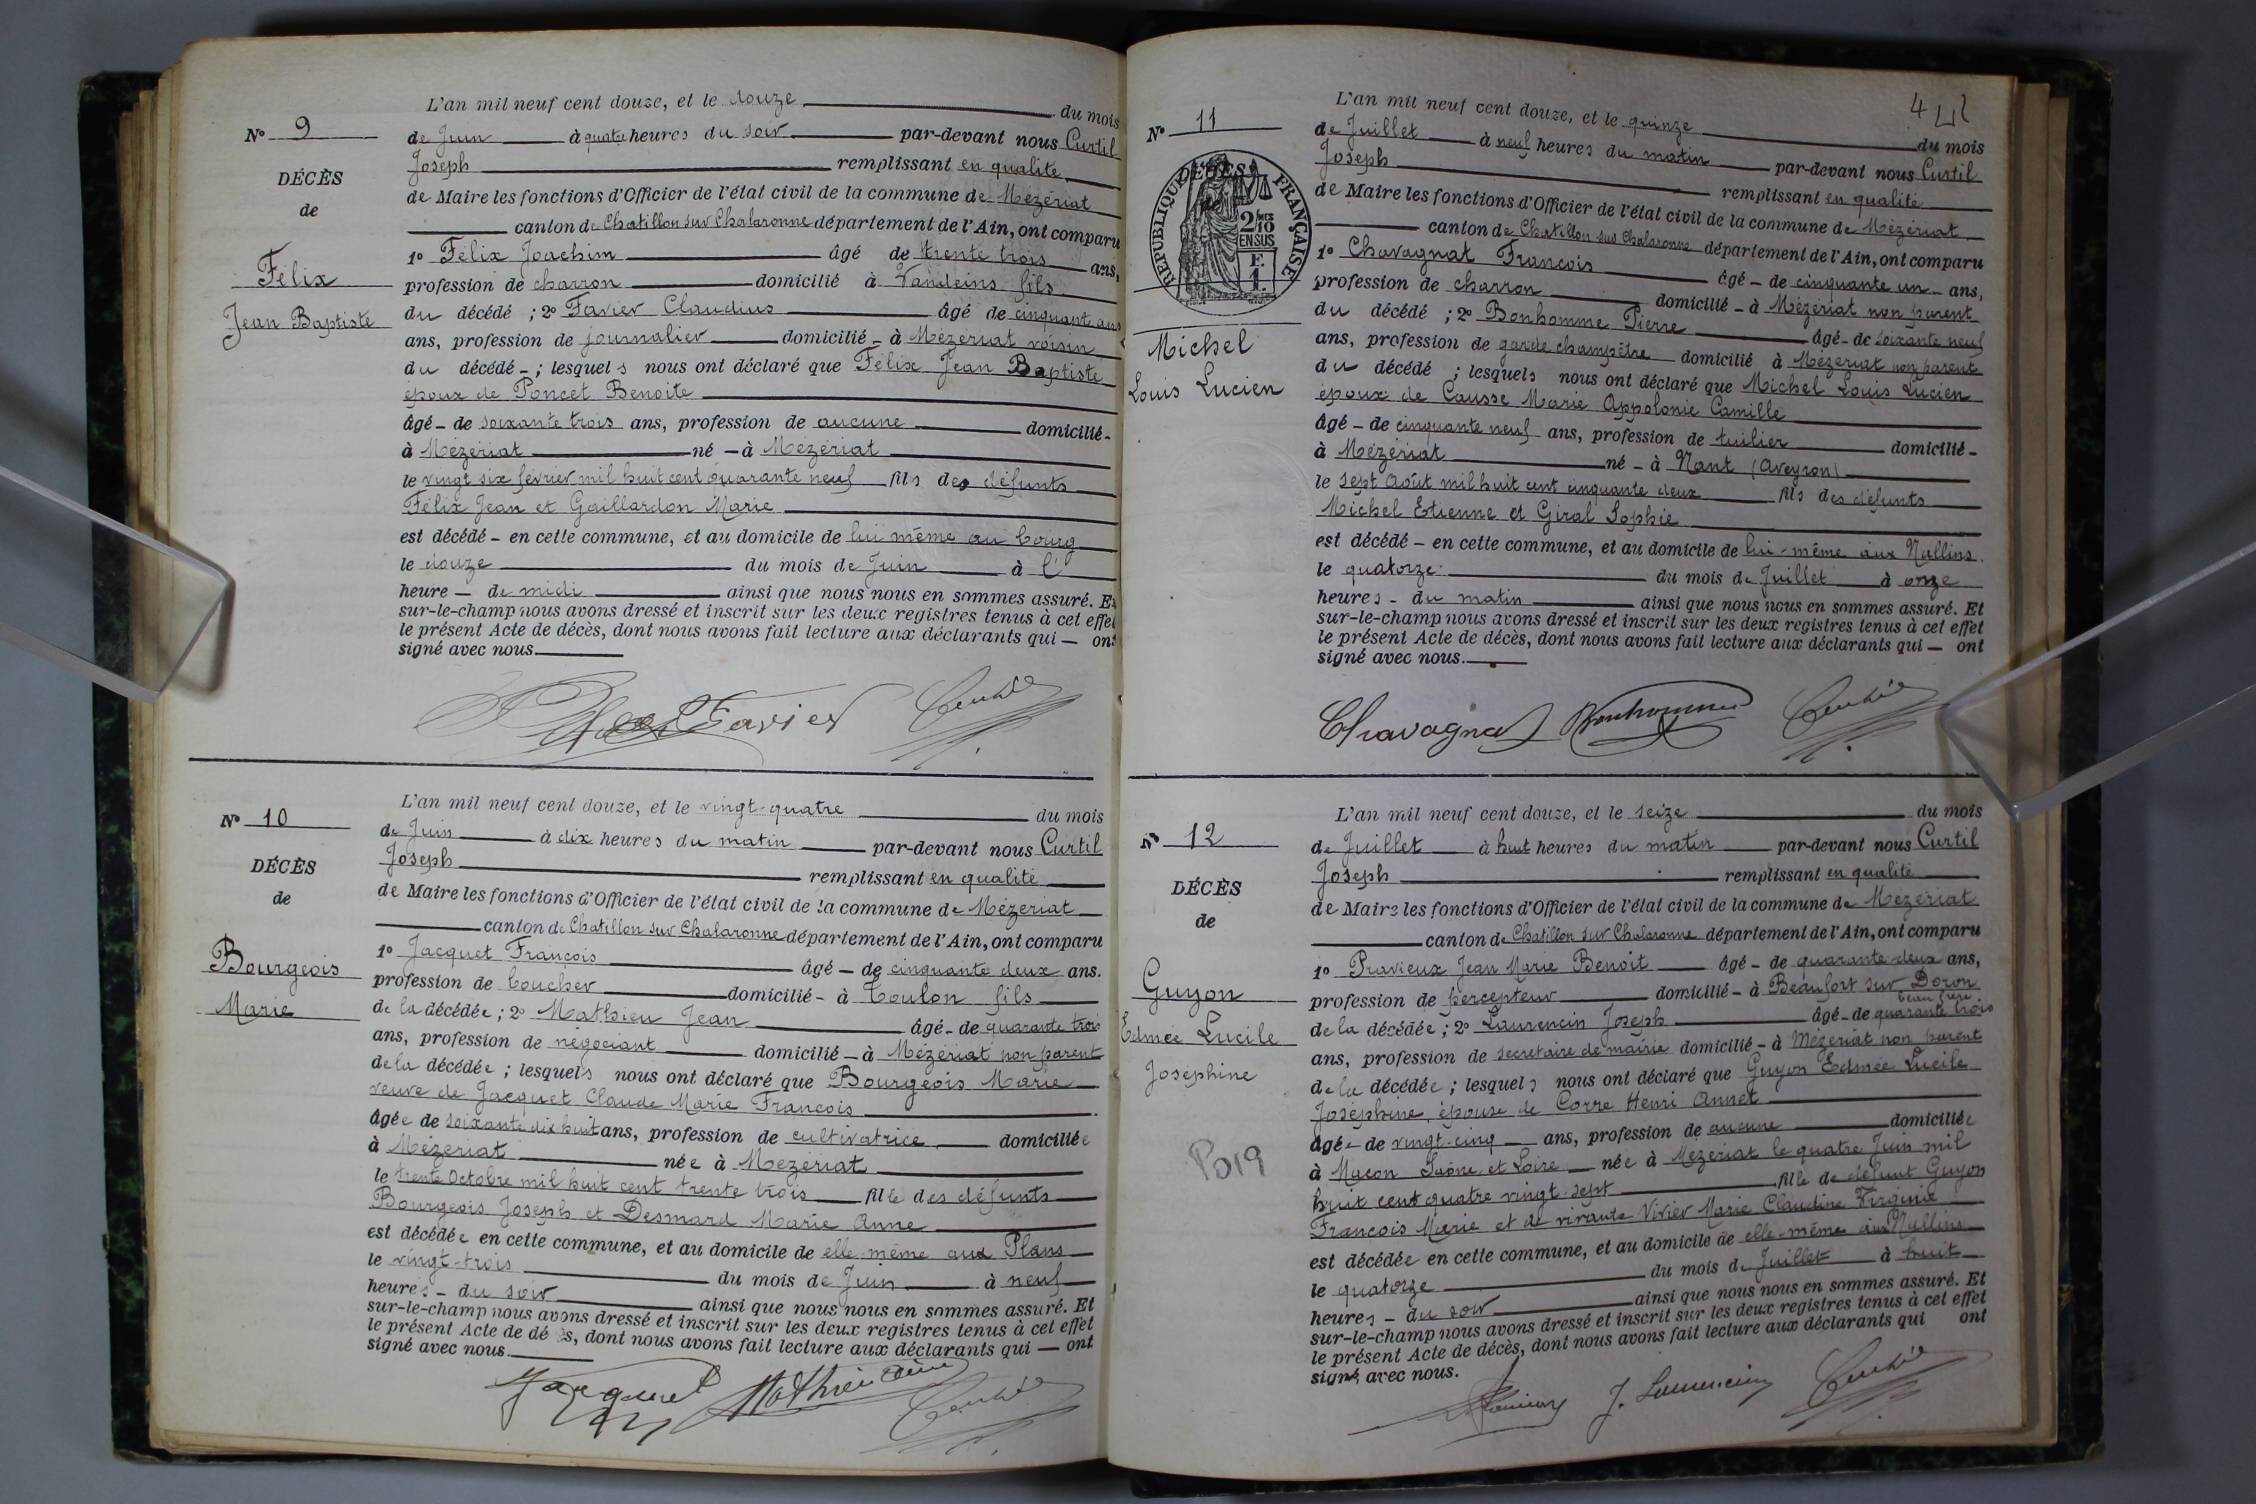 L'an mil neuf cent douze, et le douze du mois
N° 9
de Juin à quatre heures du soir par-devant nous Curtil
Joseph remplissant en qualité
DÉCÈS
de
de Maire les fonctions d'Officier de l'état civil de la commune de Mézériat
canton de Chatillon sur Chalaronne département de l'Ain, ont comparu
Félix
Jean Baptiste
1° Félix Joachim âgé de trente trois ans,
profession de charron domicilié à Vandeins fils
du décédé ; 2° Favier Claudius âgé de cinquante ans
ans, profession de journalier domicilié à Mézériat voisin
du décédé ; lesquels nous ont déclaré que Félix Jean Baptiste
époux de Poncet Benoite
âgé de soixante trois ans, profession de aucune domicilié
à Mézériat né à Mézériat
le vingt six février mil huit cent quarante neuf fils des défunts
Félix Jean et Gaillardon Marie
est décédé en cette commune, et au domicile de lui même au bourg
le douze du mois de Juin à l'
heure de midi ainsi que nous nous en sommes assuré. Et
sur-le-champ nous avons dressé et inscrit sur les deux registres tenus à cet effet
le présent Acte de décès, dont nous avons fait lecture aux déclarants qui ont
signé avec nous.
Favier Curtil
L'an mil neuf cent douze, et le vingt-quatre du mois
N° 10
de Juin à dix heures du matin par-devant nous Curtil
Joseph remplissant en qualité
DÉCÈS
de
de Maire les fonctions d'Officier de l'état civil de la commune de Mézériat
canton de Chatillon sur Chalaronne département de l'Ain, ont comparu
Bourgeois
Marie
1° Jacquet François âgé de cinquante deux ans.
profession de boucher domicilié à Toulon fils
de la décédée ; 2° Mathieu Jean âgé de quarante trois
ans, profession de négociant domicilié à Mézériat non parent
de la décédée ; lesquels nous ont déclaré que Bourgeois Marie
veuve de Jacquet Claude Marie François
âgée de soixante dix huit ans, profession de cultivatrice domiciliée
à Mézériat née à Mézériat
le trente Octobre mil huit cent trente trois fille des défunts
Bourgeois Joseph et Desmard Marie Anne
est décédée en cette commune, et au domicile de elle-même aux Plans
le vingt-trois du mois de Juin à neuf
heures du soir ainsi que nous nous en sommes assuré. Et
sur-le-champ nous avons dressé et inscrit sur les deux registres tenus à cet effet
le présent Acte de décès, dont nous avons fait lecture aux déclarants qui ont
signé avec nous
Jacquet Mathieu Curtil
4
L'an mil neuf cent douze, et le quinze du mois
N° 11
de Juillet à neuf heures du matin par-devant nous Curtil
Joseph remplissant en qualité
DÉCÈS
de
RÉPUBLIQUE FRANÇAISE
2/10 MES
EN SUS
F.
1.
de Maire les fonctions d'Officier de l'état civil de la commune de Mézériat
canton de Chatillon sur Chalaronne département de l'Ain, ont comparu
Michel
Louis Lucien
1° Chavagnat François âgé de cinquante un ans,
profession de charron domicilié à Mézériat non parent
du décédé ; 2° Bonhomme Pierre âgé de soixante neuf
ans, profession de garde champêtre domicilié à Mézériat non parent
du décédé ; lesquels nous ont déclaré que Michel Louis Lucien
époux de Causse Marie Appolonie Camille
âgé de cinquante neuf ans, profession de tuilier domicilié
à Mézériat né à Nant (Aveyron)
le sept Août mil huit cent cinquante deux fils des défunts
Michel Etienne et Giral Sophie
est décédé en cette commune, et au domicile de lui-même aux Nallins
le quatorze du mois de Juillet à onze
heures du matin ainsi que nous nous en sommes assuré. Et
sur-le-champ nous avons dressé et inscrit sur les deux registres tenus à cet effet
le présent Acte de décès, dont nous avons fait lecture aux déclarants qui ont
signé avec nous.
Chavagnat Bonhomme Curtil
L'an mil neuf cent douze, et le seize du mois
N° 12
de Juillet à huit heures du matin par-devant nous Curtil
Joseph remplissant en qualité
DÉCÈS
de
de Maire les fonctions d'Officier de l'état civil de la commune de Mézériat
canton de Chatillon sur Chalaronne département de l'Ain, ont comparu
Guyon
Edmée Lucile
Joséphine
P019
1° Pravieux Jean Marie Benoit âgé de quarante-deux ans,
profession de percepteur domicilié à Beaufort sur Doron
beau frère
de la décédée ; 2° Laurencin Joseph âgé de quarante trois
ans, profession de secrétaire de mairie domicilié à Mézériat non parent
de la décédée ; lesquels nous ont déclaré que Guyon Edmée Lucile
Joséphine, épouse de Corre Henri Annet
âgée de vingt-cinq ans, profession de aucune domiciliée
à Macon Saône et Loire née à Mézériat le quatre Juin mil
huit cent quatre vingt sept fille de défunt Guyon
François Marie et de vivante Vivier Marie Claudine Virginie
est décédée en cette commune, et au domicile de elle-même aux Nallins
le quatorze du mois de Juillet à huit
heures du soir ainsi que nous nous en sommes assuré. Et
sur-le-champ nous avons dressé et inscrit sur les deux registres tenus à cet effet
le présent Acte de décès, dont nous avons fait lecture aux déclarants qui ont
signé avec nous.
J. Laurencin Curtil